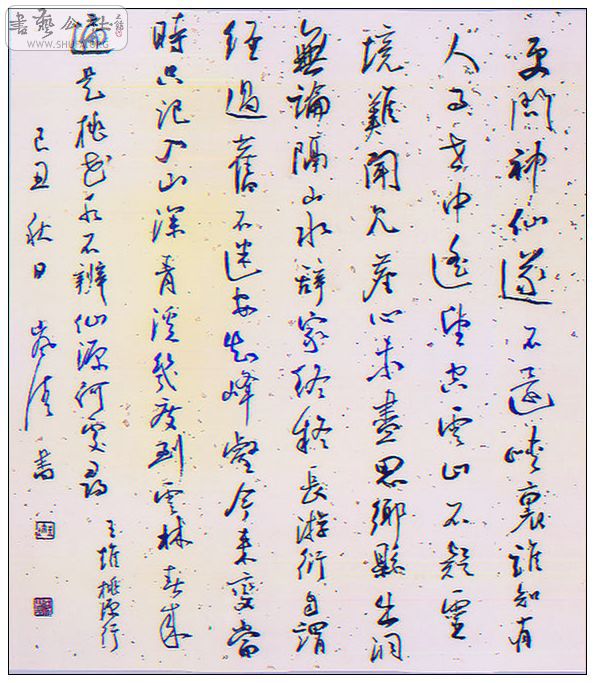 更問神仙遂不還峽裏誰知有
人事世中遙望空雲山不疑靈
境難聞見塵心未盡思鄉縣出洞
無論隔山水辭家終擬長游衍自謂
經過舊不迷安知峰壑今來變當
時只記入山深青溪幾度到雲林春來
遍是桃花水不辨仙源何處尋
王維桃源行
己丑秋日 書
書藝公社